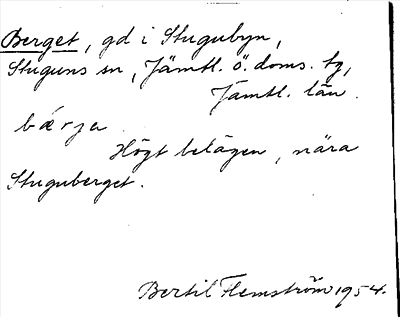 Berget, gd i Stugubyn,
Stuguns sn, Jämtl. ö. doms. tg,
Jämtl. län.
bærja
Högt belägen, nära
Stuguberget.
Bertil Flemström 1954.